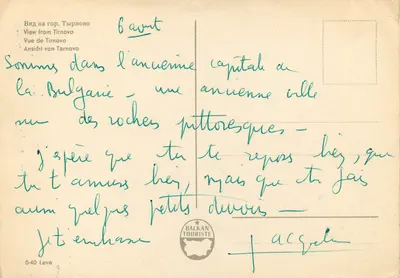 Вид на гор. Тырново
View from Tirnovo
Vue de Tirnovo
Ansicht von Tarnovo
6 avril
Sommes dans l'ancienne capitale de
la Bulgarie - une ancienne ville
sur des rochers pittoresques -
j'espère que tu te reposes bien, que
tu t'amuses bien, mais que tu fais
aussi quelques petits devoirs -
Je t'embrasse
BALKAN
TOURISTE
0-40 Leva